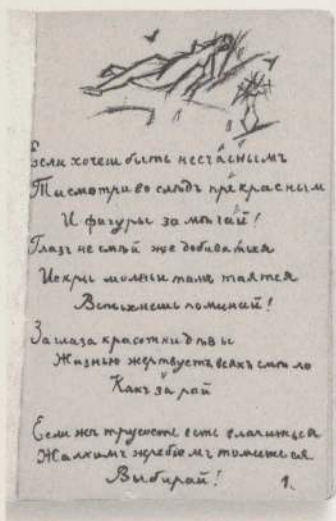 Если хочешь быть несчаснымъ
Ти смотри во слѣдъ прекраснымъ
И фигуры замѣчай!
Глазъ не смѣй же добиваться
Искры молньи тамъ таятся
Вспыхнешь поминай!
За глаза красотки дѣвы
Жизнью жертвуетъ всякъ смѣло
Какъ за рай
Если жъ трусость есть
Жалкимъ жребіемъ томиться
Выбирай!
1.